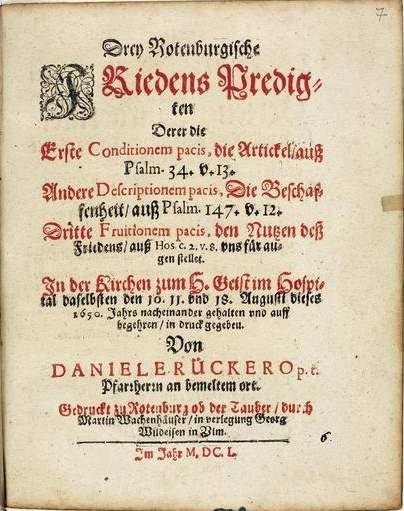 7
Drey Rotenburgische
FRiedens Predig-
ten
Derer die
Erste Conditionem pacis, die Artickel/auß
Psalm. 34. v. 13.
Andere Descriptionem pacis, Die Beschaf-
fenheit/auß Psalm. 147. v. 12.
Dritte Fruitionem pacis, den Nutzen deß
Friedens/auß Hos. c. 2. v. 8. vns für au-
gen stellet.
In der Kirchen zum H. Geist im Hospi-
tal daselbsten den 10. 11. vnd 18. Augusti dieses
1650. Jahrs nacheinander gehalten vnd auff
begehren/in druck gegeben.
Von
DANIELE RÜCKERO p. t.
Pfarrherrn an bemeltem ort.
Gedruckt zu Rotenburg ob der Tauber/durch
Martin Wachenhäuser/in verlegung Georg
Wildeisen in Vlm.
6
Im Jahr M. DC. L.